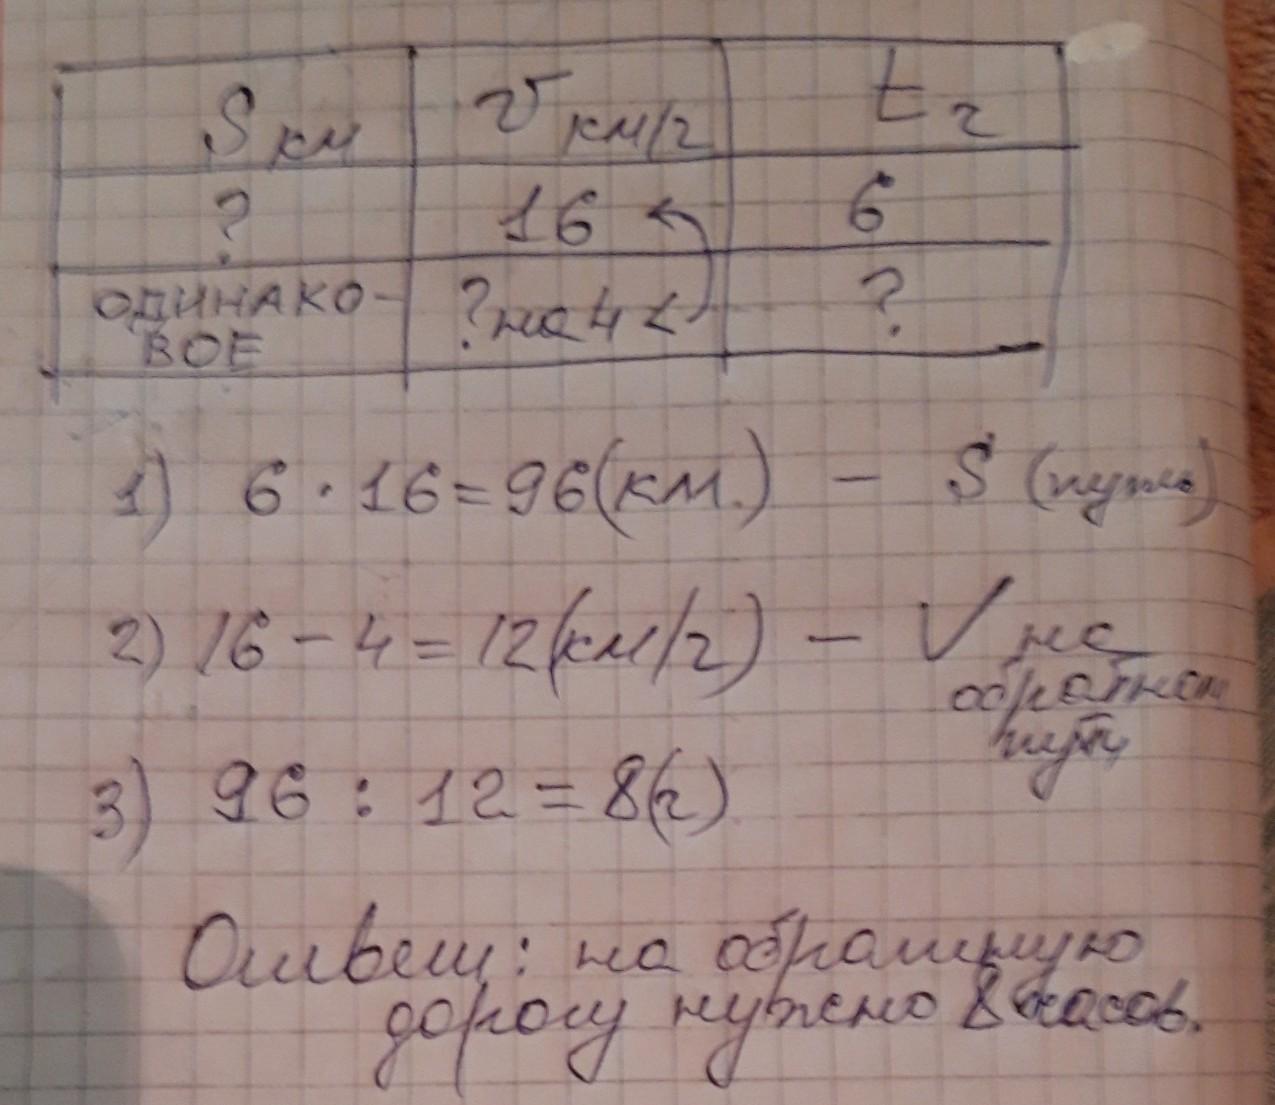 S км v км/ч t ч
? 16 6
ОДИНАКО- ? на 4 < ?
ВОЕ
1) 6 · 16 = 96 (км.) – S (путь)
2) 16 – 4 = 12 (км/ч) – V на
обратном
пути
3) 96 : 12 = 8 (ч)
Ответ: на обратную
дорогу нужно 8 часов.